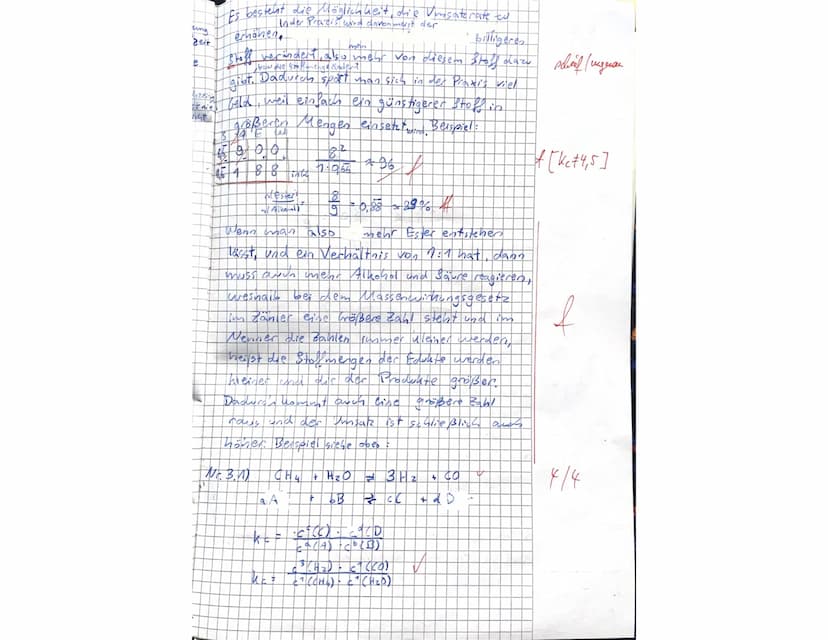 Es besteht die Möglichkeit, die Umsatzrate zu
In der Praxis wird davon meist der
erhöhen. billigeres
Stoff verändert, also mehr von diesem Stoff dazu
man
gibt. Dadurch spart man sich in der Praxis viel
schief/ungenau
Geld, weil einfach ein günstigerer Stoff in
größeren Mengen einsetzt wird. Beispiel:
S A E W
9 0 0
1 8 8
8²
≈ 96 f
f [Kc≠4,5]
8
9
= 0,88 ≈ 89% f
Wenn man also mehr Ester entstehen
lässt, und ein Verhältnis von 1:1 hat, dann
muss auch mehr Alkohol und Säure reagieren,
weshalb bei dem Massenwirkungsgesetz
im Zähler eine größere Zahl steht und im
f
Nenner die Zahlen immer kleiner werden,
heißt die Stoffmengen der Edukte werden
kleiner und die der Produkte größer.
Dadurch kommt auch eine größere Zahl
raus und der Umsatz ist schließlich auch
höher. Beispiel siehe oben:
Nr. 3.1) CH₄ + H₂O ⇌ 3H₂ + CO ✓ 4/4
aA + bB ⇌ cC + dD
Kc = c^c(C) · c^d(D) / c^a(A) · c^b(B)
Kc = c³(H₂) · c¹(CO) / c¹(CH₄) · c¹(H₂O) ✓